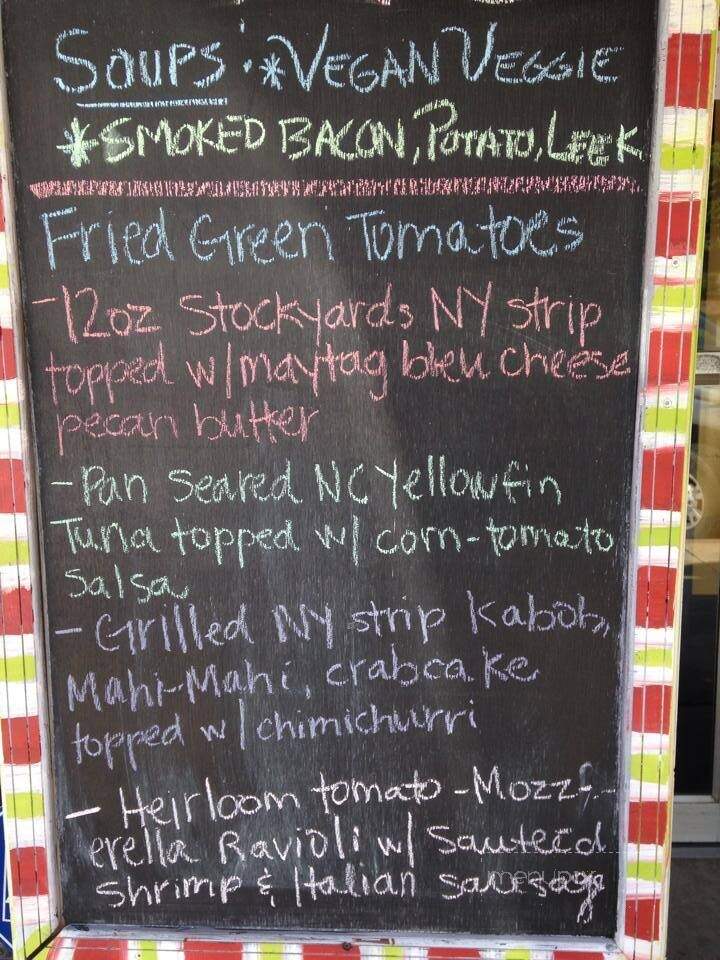 Soups: *Vegan Veggie
*Smoked Bacon, Potato, Leek
Fried Green Tomatoes
-12oz Stockyards NY strip
topped w/maytag bleu cheese
pecan butter
-Pan Seared NC Yellowfin
Tuna topped w/ corn-tomato
Salsa
- Grilled NY strip Kabob,
Mahi-Mahi, crabcake
topped w/ chimichurri
- Heirloom tomato-Mozz-
erella Ravioli w/ Sauteed
Shrimp & Italian sausage